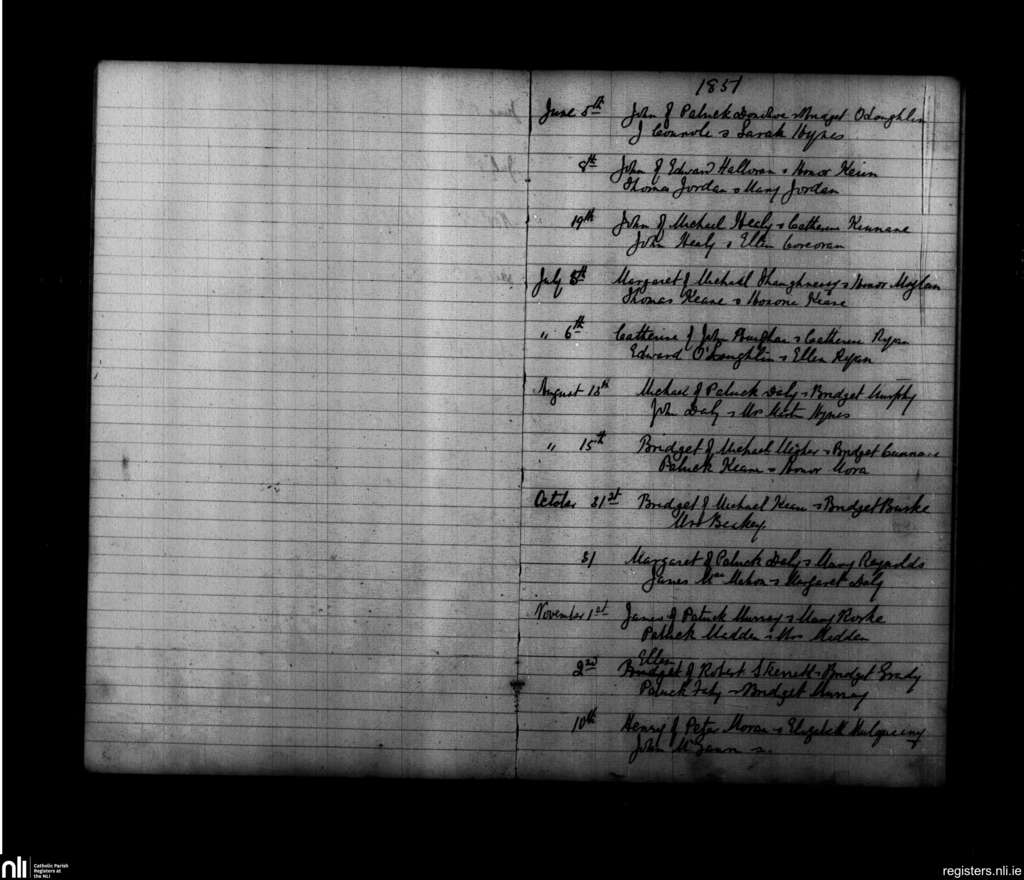 1851
June 5th John of Patrick Donohoe & Bridget O'Loughlin
J Connole & Sarah Hynes
8th John of Edward Halloran & Honor Keirn
Thomas Jordan & Mary Jordan
19th John of Michael Healy & Catherine Kinnane
John Healy & Ellen Corcoran
July 5th Margaret of Michael Shaughnessy & Honor Moylan
Thomas Keane & Honoria Keane
" 6th Catherine of John & Catherine Ryan
Edward O'Loughlin & Ellen Ryan
August 15th Michael of Patrick Daly & Bridget Murphy
John Daly & Mrs Martin Hynes
" 15th Bridget of Michael & Bridget
Patrick Keane & Honor Mora
October 31st Bridget of Michael Keane & Bridget Burke
Mrs Beckey
31 Margaret of Patrick Daly & Mary Reynolds
James Mac Mahon & Margaret Daly
November 1st James of Patrick Murray & Mary Rorke
Patrick Madden & Mrs Madden
Ellen
2nd Bridget of Robert Skerrett & Bridget Grady
Patrick Fahy & Bridget Murray
10th Henry of Peter Moran & Elizabeth Mulqueeny
John McGann &
nli Catholic Parish
Registers at
the NLI
registers.nli.ie